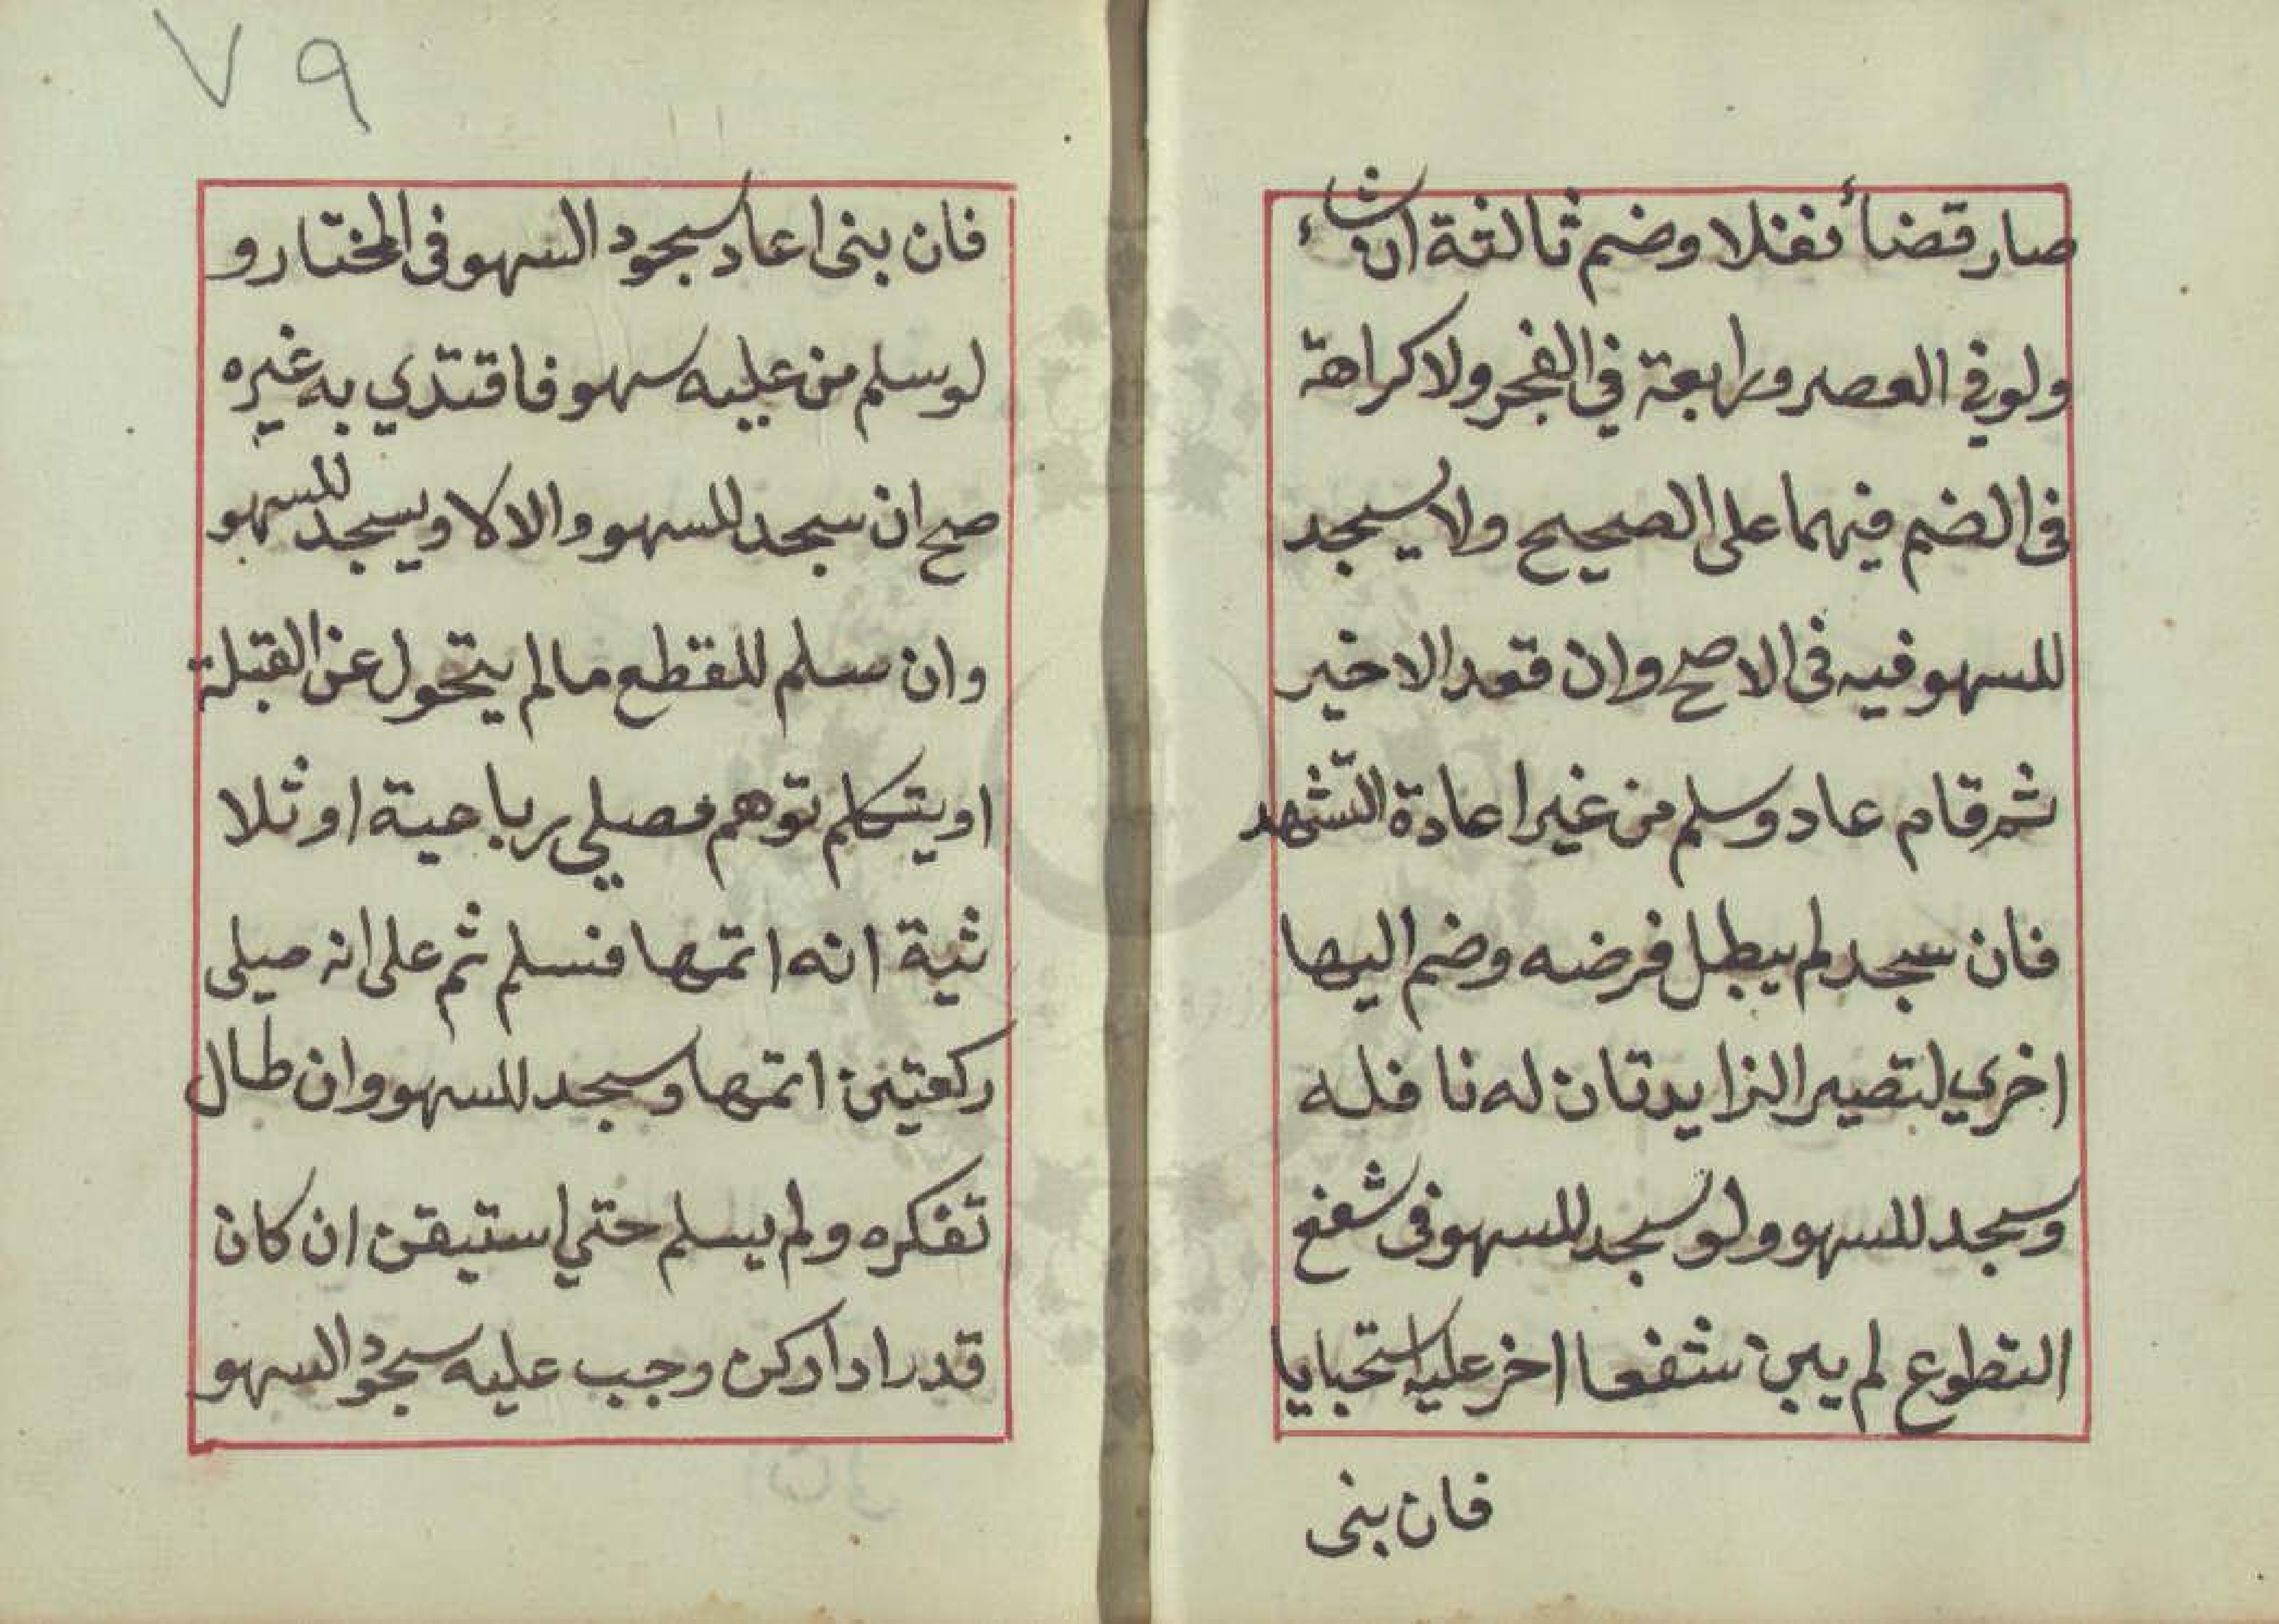 صار قضأ نفلا وضم ثالثة ان شاء
ولو في العصر ورابعة في الفجر ولا كراهة
فى الضم فيهما على الصحيح ولا يسجد
للسهو فيه فى الاصح وان قعد الاخير
ثم قام عاد وسلم من غير اعادة التّشهد
فان سجد لم يبطل فرضه وضم اليها
اخري لتصير الزايدتان له نافله
وسجد للسهو ولو سجد للسهو فى شفع
التطوع لم يبن شفعا اخر عليه استحبابا
فان بنى
٧٩
فان بنى اعاد سجود السهو فى المختار و
لو سلم من عليه سهو فاقتدي به غيره
صح ان سجد للسهو والا لا ويسجد للسهو
وان سلم للقطع ما لم يتحول عن القبلة
او يتكلم توهم مصلي رباعية او ثلا
ثية انه اتمها فسلم ثم على انه صلى
ركعتين اتمها وسجد للسهو وان طال
تفكره ولم يسلم حتي استيقن ان كان
قدر ادا ركن وجب عليه سجود السهو